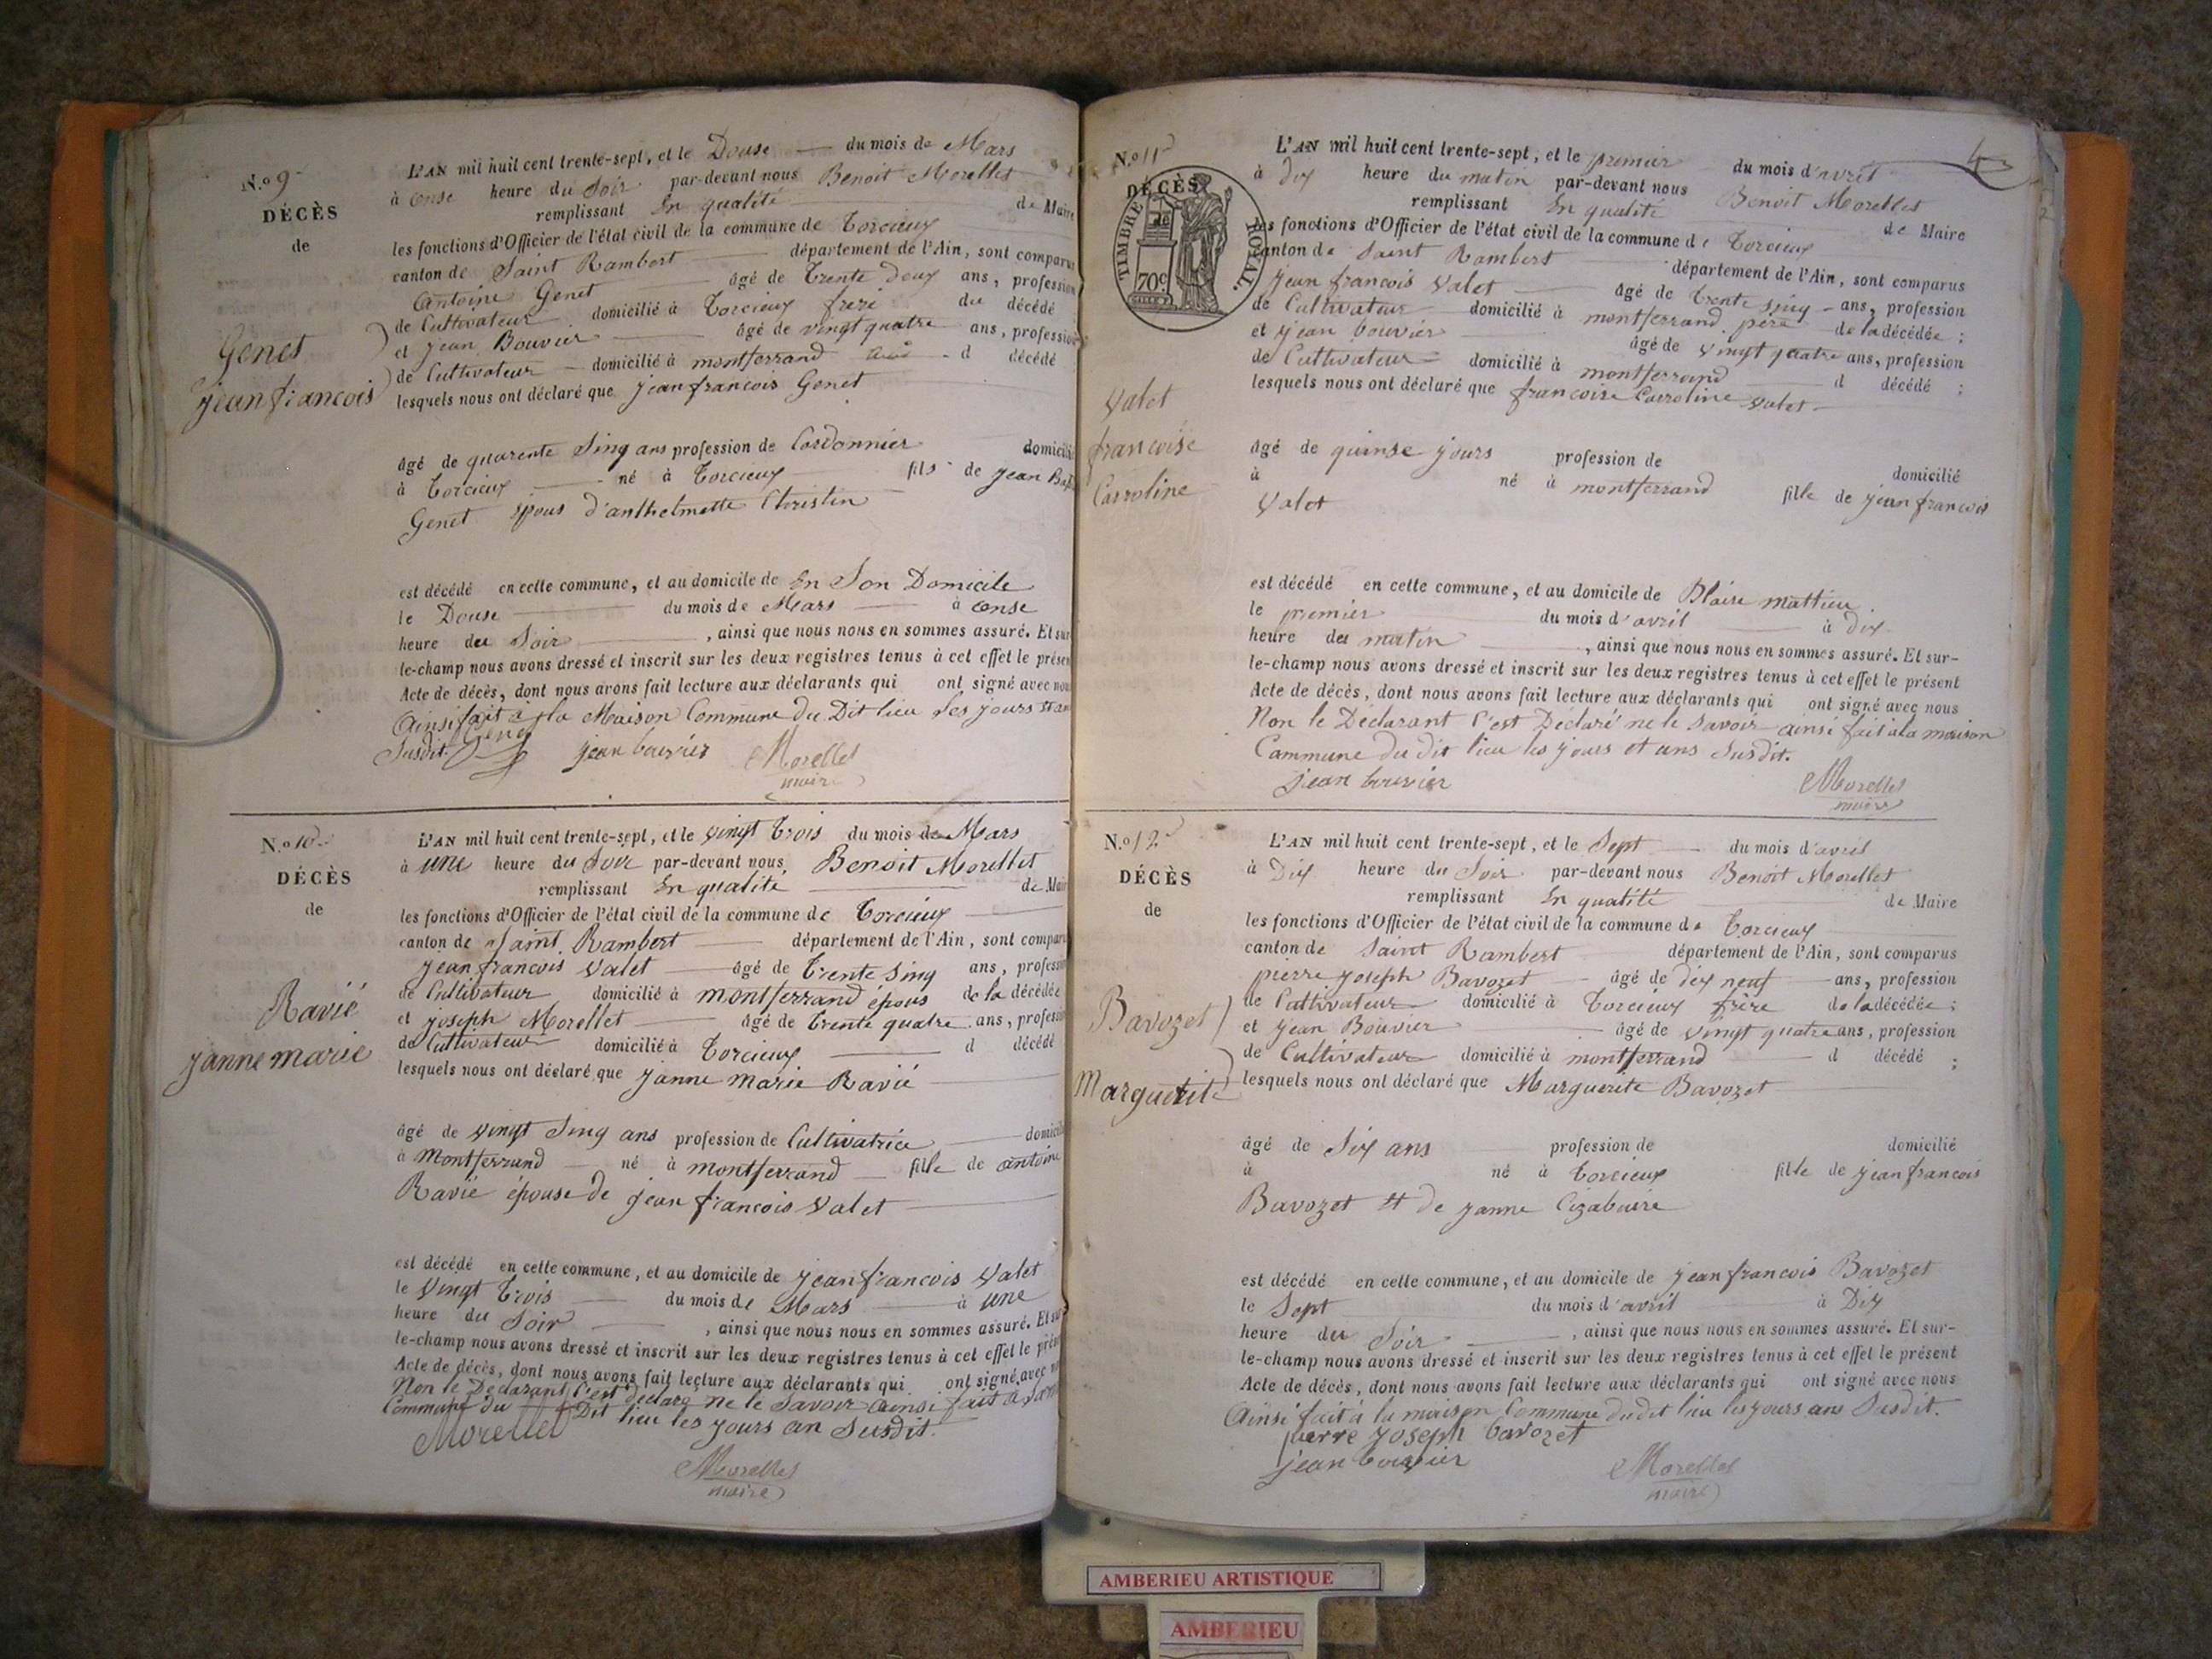 N.º 9
DÉCÈS
de
Genet
jean francois
L'AN mil huit cent trente-sept, et le Douse du mois de Mars
à onse heure du Soir par-devant nous Benoit Morellet
remplissant En qualité de Maire
les fonctions d'Officier de l'état civil de la commune de Torcieux
canton de Saint Rambert département de l'Ain, sont comparus
Antoine Genet âgé de Trente deux ans, profession
de Cultivateur domicilié à Torcieux frere du décédé
et Jean Bouvier âgé de vingt quatre ans, profession
de Cultivateur domicilié à montferrand d décédé
lesquels nous ont déclaré que jean francois Genet
âgé de quarente Sinq ans profession de Cordonnier domicilié
à Torcieux né à Torcieux fils de jean Bap
Genet Epous d'anthelmette Christin
est décédé en cette commune, et au domicile de En Son Domicile
le Douse du mois de Mars à onse
heure du Soir, ainsi que nous nous en sommes assuré. Et sur
le-champ nous avons dressé et inscrit sur les deux registres tenus à cet effet le présen
Acte de décès, dont nous avons fait lecture aux déclarants qui ont signé avec nous
Ainsi fait à la Maison Commune du Dit lieu les jours et an
Susdit. Genet jean bouvier Morellet
maire
N.º 10
DÉCÈS
de
Ravié
janne marie
L'AN mil huit cent trente-sept, et le vingt Trois du mois de Mars
à une heure du Soir par-devant nous Benoit Morellet
remplissant En qualité de Mair
les fonctions d'Officier de l'état civil de la commune de Torcieux
canton de Saint Rambert département de l'Ain, sont comparu
jean francois Valet âgé de Trente Sinq ans, profession
de Cultivateur domicilié à montferrand épous de la décédée
et joseph Morellet âgé de Trente quatre ans, profession
de Cultivateur domicilié à Torcieux d décédé
lesquels nous ont déclaré que janne marie Ravié
âgé de vingt Sinq ans profession de Cultivatrice domicilié
à Montferrand né à montferrand fille de antoine
Ravié épouse de jean francois Valet
est décédé en cette commune, et au domicile de jean francois Valet
le Vingt Trois du mois de Mars à une
heure du Soir, ainsi que nous nous en sommes assuré. Et sur
le-champ nous avons dressé et inscrit sur les deux registres tenus à cet effet le prése
Acte de décès, dont nous avons fait lecture aux déclarants qui ont signé avec
Non le Declarant C'est déclaré ne le Savoir ainsi fait à la
Commune du Dit lieu les jours an Susdit.
Morellet
Morellet
maire
N.º 11
DÉCÈS
de
TIMBRE ROYAL
70c
Valet
francoise
Carroline
L'AN mil huit cent trente-sept, et le premier du mois d'avril
à dix heure du matin par-devant nous Benoit Morellet
remplissant En qualité de Maire
les fonctions d'Officier de l'état civil de la commune de Torcieux
canton de Saint Rambert département de l'Ain, sont comparus
Jean francois Valet âgé de Trente Sinq ans, profession
de Cultivateur domicilié à montferrand pere de la décédée ;
et jean bouvier âgé de vingt quatre ans, profession
de Cultivateur domicilié à montferrand d décédé ;
lesquels nous ont déclaré que francoise Carroline Valet
âgé de quinse jours profession de domicilié
à né à montferrand fille de jean francois
Valet
est décédé en cette commune, et au domicile de Blaise mattieu
le premier du mois d'avril à dix
heure du matin, ainsi que nous nous en sommes assuré. Et sur-
le-champ nous avons dressé et inscrit sur les deux registres tenus à cet effet le présent
Acte de décès, dont nous avons fait lecture aux déclarants qui ont signé avec nous
Non le Déclarant C'est Déclaré ne le Savoir ainsi fait à la maison
Commune du dit lieu les jours et ans Susdit.
jean bouvier Morellet
maire
N.º 12
DÉCÈS
de
Bavozet
Marguerite
L'AN mil huit cent trente-sept, et le Sept du mois d'avril
à Dix heure du Soir par-devant nous Benoit Morellet
remplissant En qualité de Maire
les fonctions d'Officier de l'état civil de la commune de Torcieux
canton de Saint Rambert département de l'Ain, sont comparus
pierre joseph Bavozet âgé de dix neuf ans, profession
de Cultivateur domicilié à Torcieux frère de la décédée ;
et jean Bouvier âgé de vingt quatre ans, profession
de Cultivateur domicilié à montferrand d décédé ;
lesquels nous ont déclaré que Marguerite Bavozet
âgé de Six ans profession de domicilié
à né à Torcieux fille de jean francois
Bavozet et de janne Cizabuire
est décédé en cette commune, et au domicile de jean francois Bavozet
le Sept du mois d'avril à Dix
heure du Soir, ainsi que nous nous en sommes assuré. Et sur-
le-champ nous avons dressé et inscrit sur les deux registres tenus à cet effet le présent
Acte de décès, dont nous avons fait lecture aux déclarants qui ont signé avec nous
Ainsi fait à la maison Commune dudit lieu les jours ans Susdit.
pierre joseph bavozet
jean bouvier Morellet
maire
AMBERIEU ARTISTIQUE
AMBERIEU